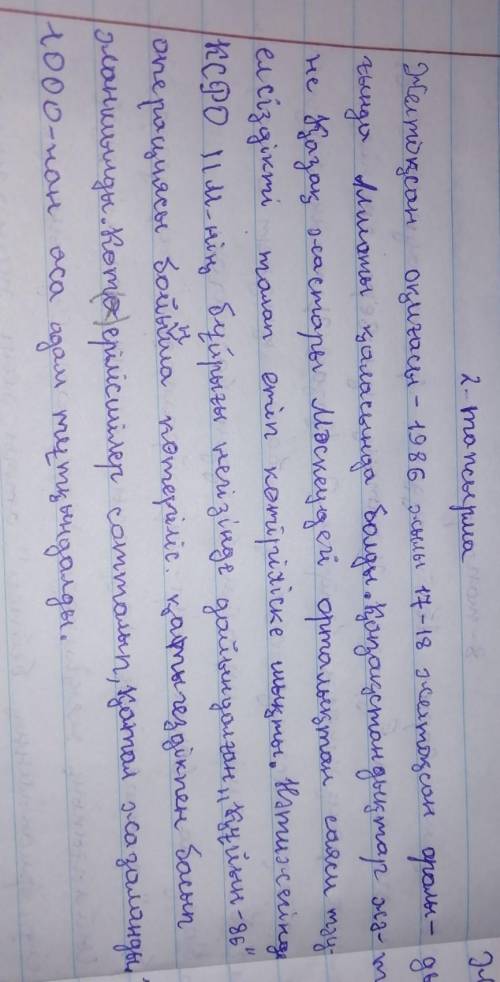 2-тапсырма
Желтоқсан оқиғасы - 1986 жылы 17-18 желтоқсан аралы-
ғында Алматы қаласында болды. Қазақстандықтар жә-
не Қазақ жастары Мәскеудегі орталықтан саяси тәу-
елсіздікті талап етіп көтеріліске шықты. Нәтижесінде
КСРО ІІМ-нің бұйрығы негізінде дайындалған „Құйын-86"
операциясы бойынша көтеріліс қатыгездікпен басып
жаншылды. Көтерілісшілер сотталып, қатал жазаланды,
1000-нан аса адам тұтқындалды.